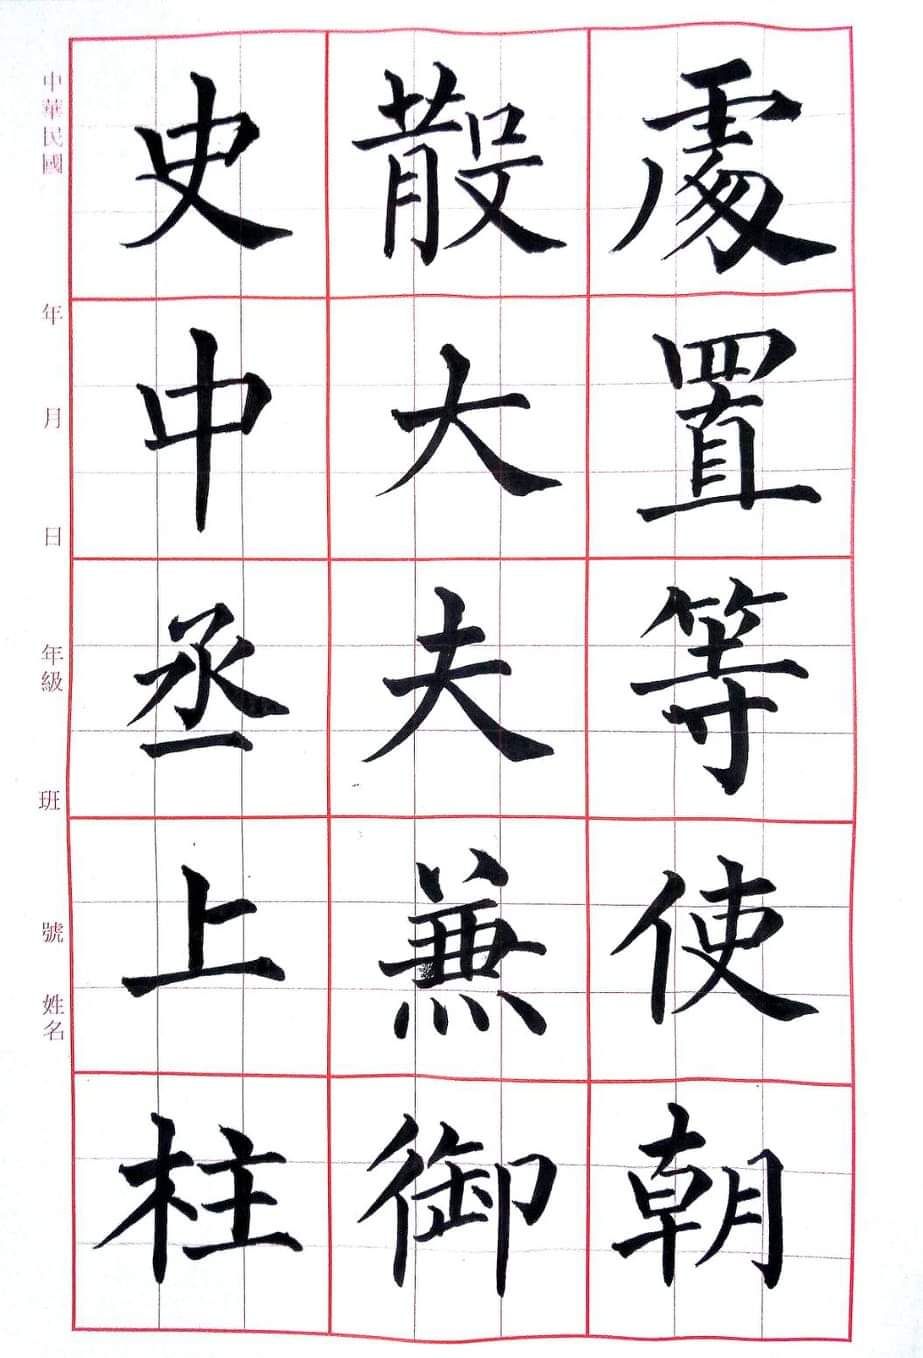 處置等使朝
散大夫兼御
史中丞上柱
中華民國 年 月 日 年級 班 號 姓名